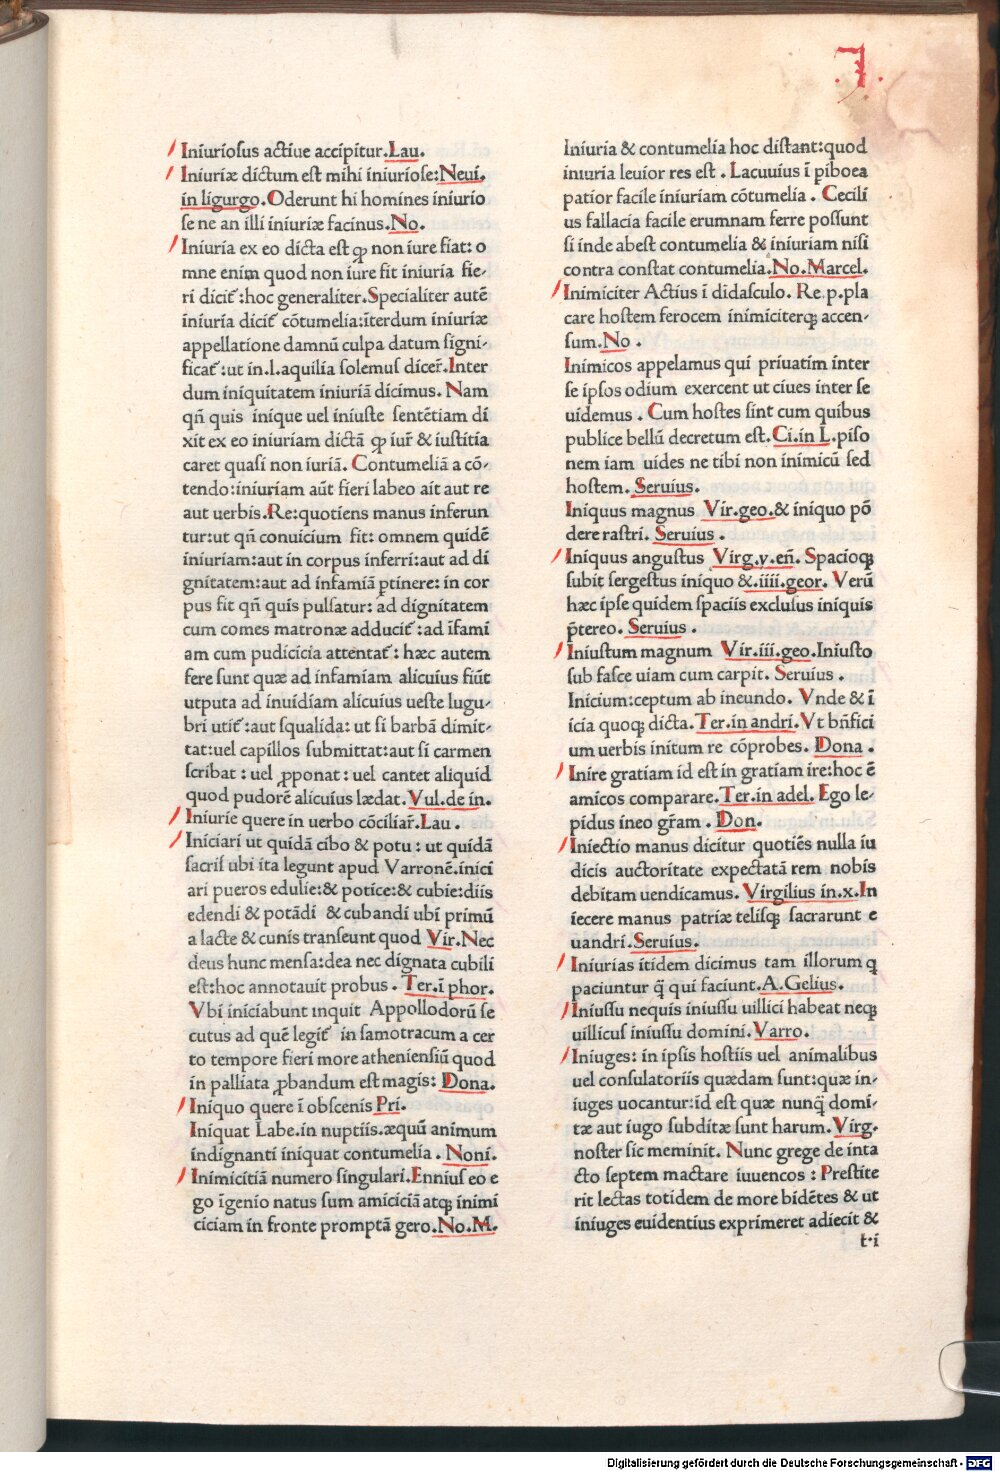 I
Iniuriosus actiue accipitur.Lau.
Iniuriæ dictum est mihi iniuriose:Neui.
in ligurgo.Oderunt hi homines iniurio
se ne an illi iniuriæ facinus.No.
Iniuria ex eo dicta est ꝙ non iure fiat: o
mne enim quod non iure fit iniuria fie-
ri dicit᷑:hoc generaliter.Specialiter autē
iniuria dicit᷑ cōtumelia:īterdum iniuriæ
appellatione damnū culpa datum signi-
ficat᷑:ut in.l.aquilia solemus dicer̄.Inter
dum iniquitatem iniuriā dicimus. Nam
qñ quis inique uel iniuste sentētiam di
xit ex eo iniuriam dictā ꝙ iur̄ & iustitia
caret quasi non iuriā. Contumeliā a cō-
tendo:iniuriam aūt fieri labeo ait aut re
aut uerbis.Re:quotiens manus inferun
tur:ut qñ conuicium fit: omnem quidē
iniuriam:aut in corpus inferri:aut ad di
gnitatem:aut ad infamiā ꝑtinere: in cor
pus fit qñ quis pulsatur: ad dignitatem
cum comes matronæ adducit᷑:ad īfami
am cum pudicicia attentat᷑: hæc autem
fere sunt quæ ad infamiam alicuius fiūt
utputa ad inuidiam alicuius ueste lugu-
bri utit᷑:aut squalida: ut si barbā dimit-
tat:uel capillos submittat:aut si carmen
scribat : uel ꝓponat : uel cantet aliquid
quod pudorē alicuius lædat.Vul.de in.
Iniurie quere in uerbo cōciliar̄.Lau .
Iniciari ut quidā cibo & potu : ut quidā
sacrif ubi ita legunt apud Varronē.inici
ari pueros edulie:& potice:& cubie:diis
edendi & potādi & cubandi ubi primū
a lacte & cunis transeunt quod Vir.Nec
deus hunc mensa:dea nec dignata cubili
est:hoc annotauit probus . Ter.i phor.
Vbi iniciabunt inquit Appollodorū se
cutus ad quē legit᷑ in samotracum a cer
to tempore fieri more atheniensiū quod
in palliata ꝓbandum est magis: Dona.
Iniquo quere ī obscenis Pri.
Iniquat Labe.in nuptiis.æquū animum
indignanti iniquat contumelia . Noni.
Inimicitiā numero singulari.Ennius eo e
go īgenio natus sum amiciciā atqꝫ inimi
ciciam in fronte promptā gero.No.M.
Iniuria & contumelia hoc distant:quod
iniuria leuior res est . Lacuuius ī ꝑiboea
patior facile iniuriam cōtumelia . Cecili
us fallacia facile erumnam ferre possunt
si inde abest contumelia & iniuriam nisi
contra constat contumelia.No.Marcel.
Inimiciter Actius ī didasculo. Re.p.pla
care hostem ferocem inimiciterqꝫ accen-
sum.No .
Inimicos appelamus qui priuatim inter
se ipsos odium exercent ut ciues inter se
uidemus . Cum hostes sint cum quibus
publice bellū decretum est.Ci.in L.piso
nem iam uides ne tibi non inimicū sed
hostem. Seruius.
Iniquus magnus Vir.geo.& iniquo pō
dere rastri. Seruius .
Iniquus angustus Virg.v.eñ. Spacioqꝫ
subit sergestus iniquo &.iiii.geor. Verū
hæc ipse quidem spaciis exclusus iniquis
p̄tereo. Seruius .
Iniustum magnum Vir.iii.geo.Iniusto
sub fasce uiam cum carpit. Seruius .
Inicium:ceptum ab ineundo. Vnde & ī
icia quoqꝫ dicta.Ter.in andri.Vt bñfici
um uerbis initum re cōprobes. Dona .
Inire gratiam id est in gratiam ire:hoc ē
amicos comparare.Ter.in adel. Ego le-
pidus ineo gr̄am . Don.
Iniectio manus dicitur quotiēs nulla iu
dicis auctoritate expectatā rem nobis
debitam uendicamus. Virgilius in.x.In
iecere manus patriæ telisqꝫ sacrarunt e
uandri.Seruius.
Iniurias itidem dicimus tam illorum q
paciuntur q̄ qui faciunt.A.Gelius.
Iniussu nequis iniussu uillici habeat neqꝫ
uillicus iniussu domini.Varro.
Iniuges: in ipsis hostiis uel animalibus
uel consulatoriis quædam sunt:quæ in-
iuges uocantur:id est quæ nunq̄ domi-
tæ aut iugo subditæ sunt harum. Virg.
noster sic meminit. Nunc grege de inta
cto septem mactare iuuencos : Prestite
rit lectas totidem de more bidētes & ut
iniuges euidentius exprimeret adiecit &
t·i
Digitalisierung gefördert durch die Deutsche Forschungsgemeinschaft - DFG